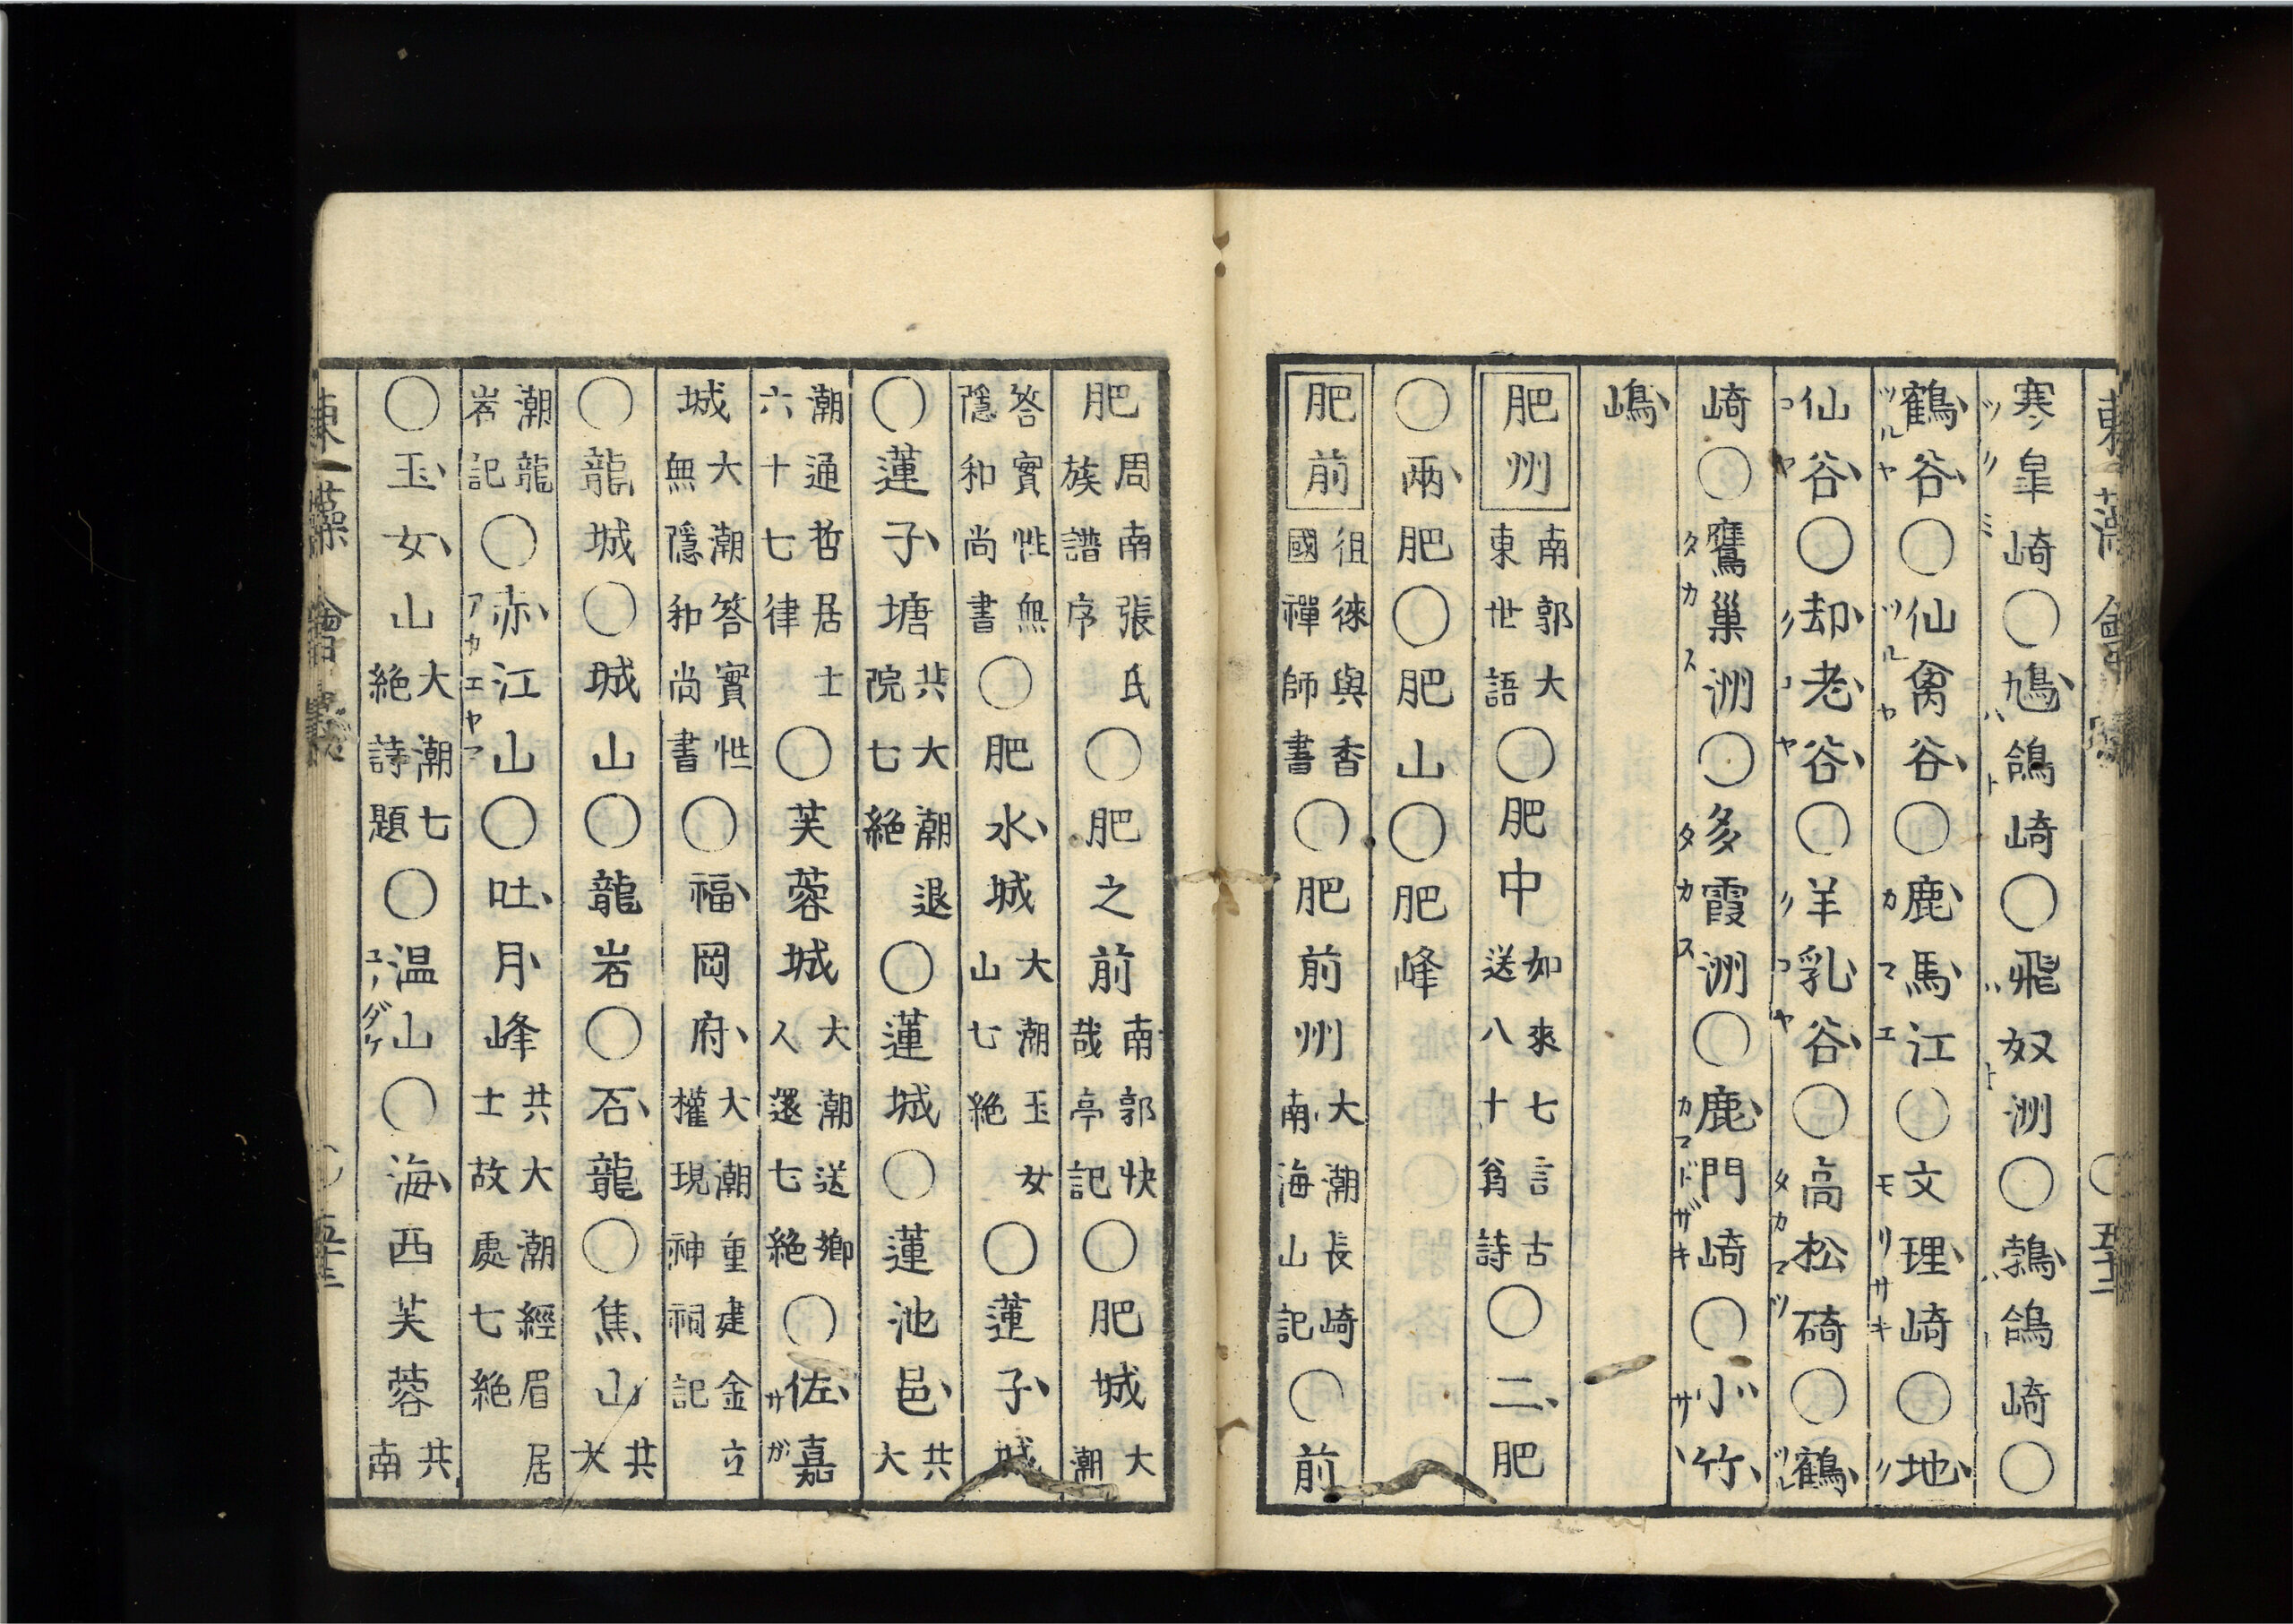 寒皐崎○鳩鴿崎○飛奴洲○鶉鴿崎○
鶴谷○仙禽谷○鹿馬江○文理崎○地
仙谷○却老谷○羊乳谷○高松碕○鶴
崎○鷹巢洲○多霞洲○鹿門崎○小竹
嶋
肥州 南郭大東世語○肥中 如來七言古送八十翁詩○二肥
○兩肥○肥山○肥峰
肥前 徂徠與香國禪師書○肥前州 大潮長崎南海山記○前
肥 周南張氏族譜序○肥之前 南郭快哉亭記○肥城 大潮
答實性無隱和尚書○肥水城 大潮玉女山七絶○蓮子城
○蓮子塘 共大潮退院七絶○蓮城○蓮池邑 共大
潮通哲居士六十七律○芙蓉城 大潮送鄉人還七絶○佐嘉
城 大潮答實性無隱和尚書○福岡府 大潮重建金立權現神祠記
○龍城○城山○龍岩○石龍○焦山 共大
潮龍岩記○赤江山○吐月峰 共大潮經眉居士故處七絶
○玉女山 大潮七絶詩題○温山○海西芙蓉 共南